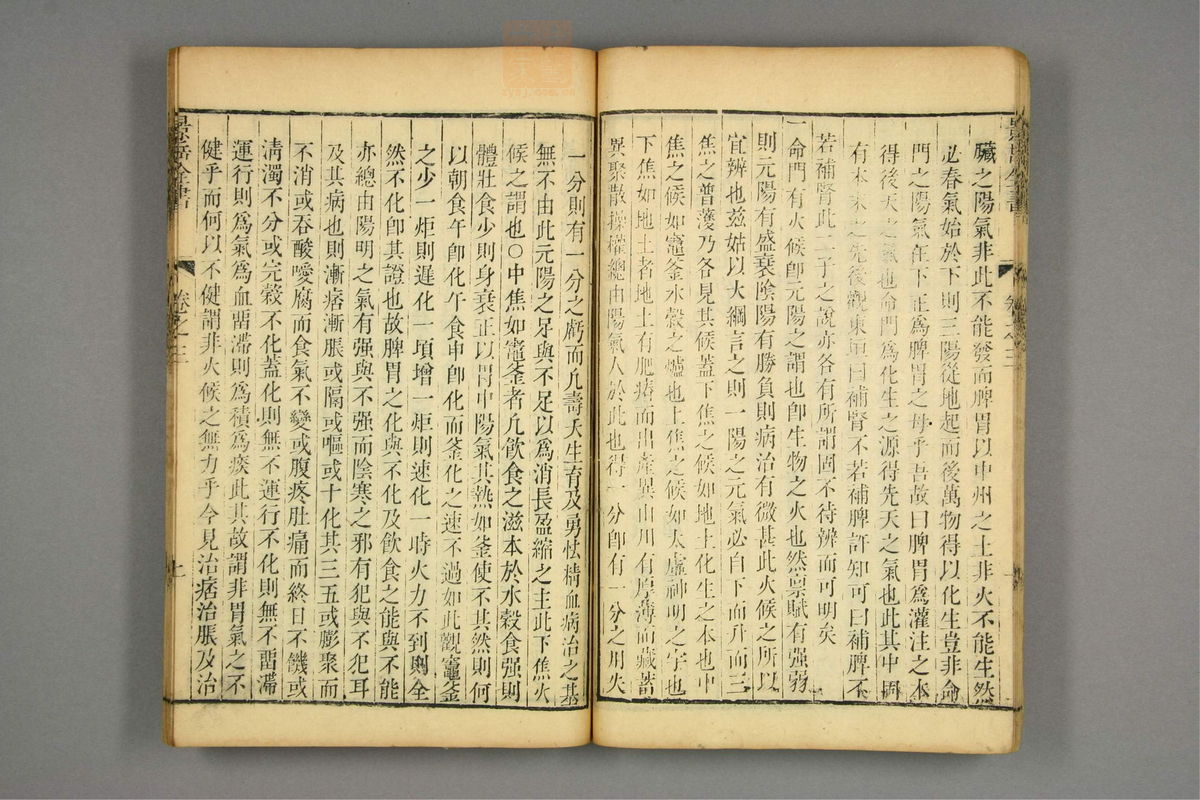 臟之陽氣非此不能發而脾胃以中州之土非火不能生然
必春氣始於下則三陽從地起而後萬物得以化生豈非命
門之陽氣在下正爲脾胃之母乎吾故曰脾胃爲灌注之本
得後天之氣也命門爲化生之源得先天之氣也此其中固
有本末之先後觀東垣曰補腎不若補脾許知可曰補脾不
若補腎此二子之說亦各有所謂固不待辨而可明矣
一命門有火候卽元陽之謂也卽生物之火也然禀賦有强弱
則元陽有盛衰陰陽有勝負則病治有微甚此火候之所以
宜辨也兹姑以大綱言之則一陽之元氣必自下而升而三
焦之普濩乃各見其候蓋下焦之候如地土化生之本也中
焦之候如竈釜水穀之爐也上焦之候如太虛神明之宇也
下焦如地土者地土有肥瘠而出產異山川有厚薄而藏蓄
異聚散操權總由陽氣人於此也得一分卽有一分之用失
一分則有一分之虧而凡壽夭生育及勇怯精血病治之基
無不由此元陽之足與不足以爲消長盈縮之主此下焦火
候之謂也○中焦如竈釜者凡飮食之滋本於水穀食强則
體壯食少則身衰正以胃中陽氣其熱如釜使不其然則何
以朝食午卽化午食申卽化而釜化之速不過如此觀竈釜
之少一炬則遲化一頃增一炬則速化一時火力不到則全
然不化卽其證也故脾胃之化與不化及飮食之能與不能
亦總由陽明之氣有强與不强而陰寒之邪有犯與不犯耳
及其病也則漸痞漸脹或隔或嘔或十化其三五或膨聚而
不消或吞酸噯腐而食氣不變或腹疼肚痛而終日不饑或
淸濁不分或完穀不化蓋化則無不運行不化則無不畱滯
運行則爲氣爲血畱滯則爲積爲痰此其故謂非胃氣之不
健乎而何以不健謂非火候之無力乎今見治痞治脹及治
景岳全書
卷之三